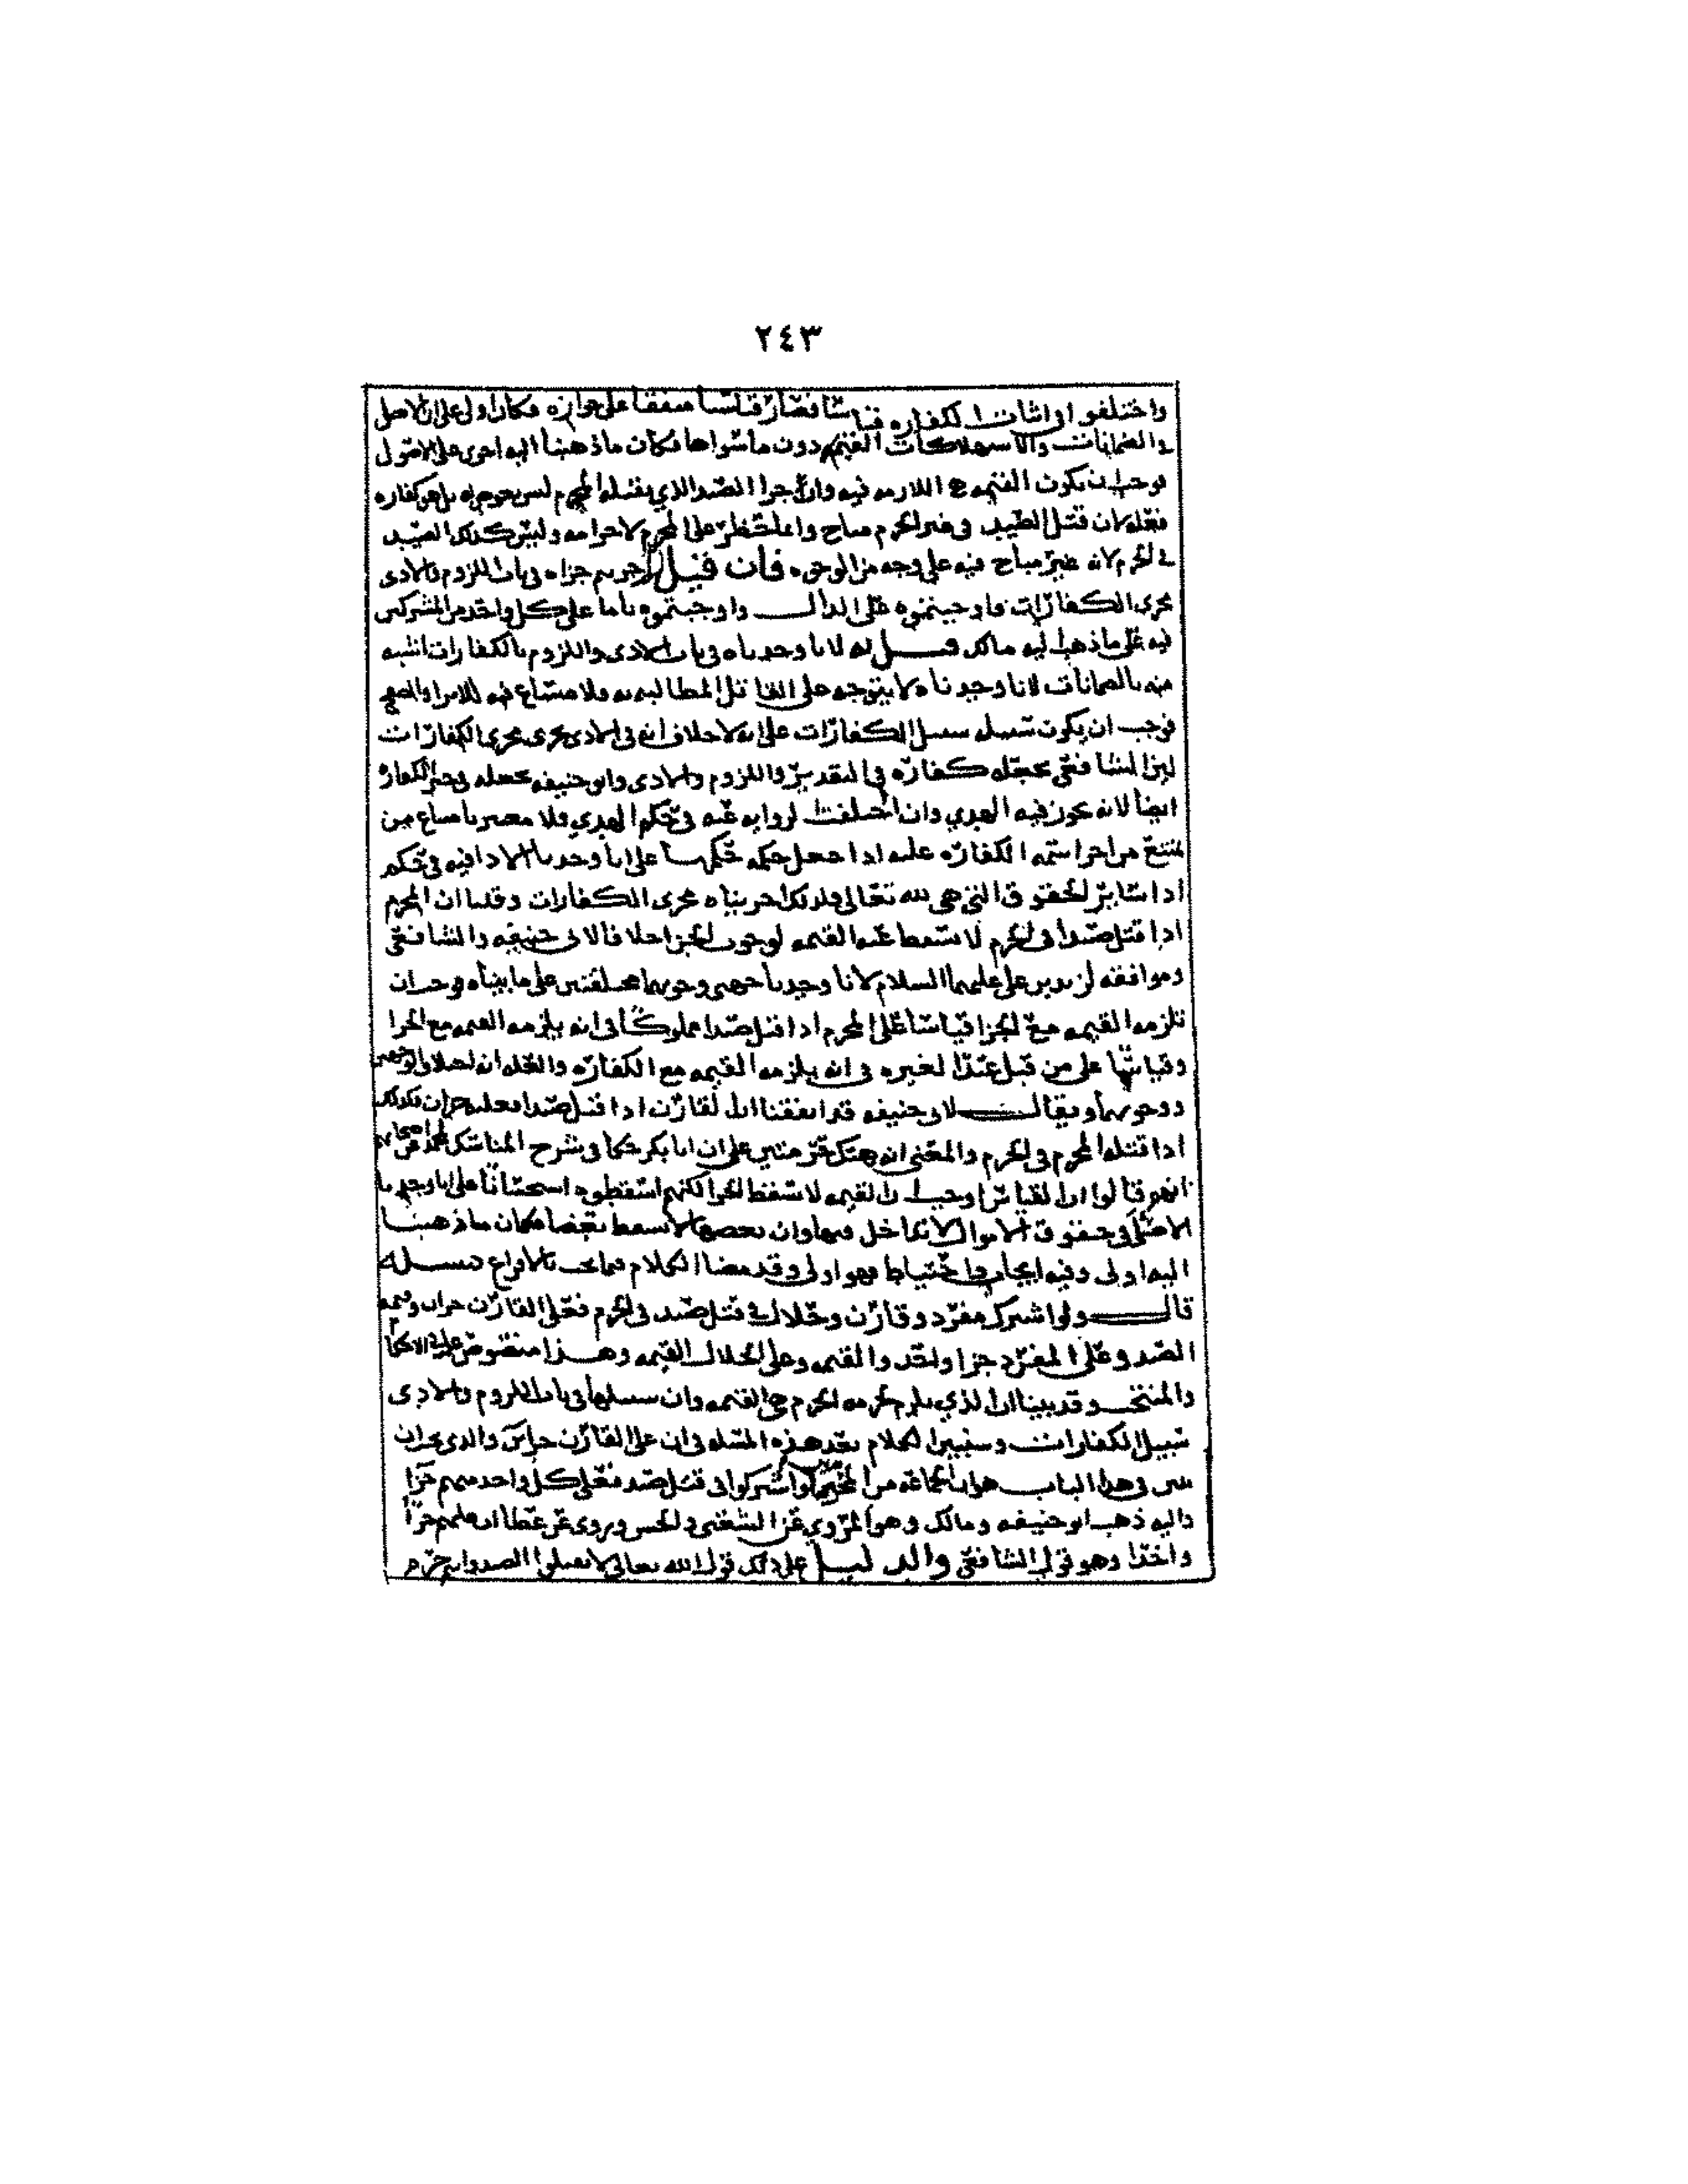 ٢٤٣
واختلفوا في اثبات الكفاره قياسا فصار قياسنا متفقا على جوازه فكان اولى على ان الاصل
في الضمانات والاستهلاكات القيمه دون ما سواها فكان ما ذهبنا اليه اجرى على الاصول
فوجب ان تكون القيمه هي اللازمه فيه وان جزا الصيد الذي يقتله المحرم ليس بتقويم له بل هو كفاره
فعله لان قتل الصيد في غير الحرم مباح وانما حظر على المحرم لاحرامه وليس كذلك الصيد
في الحرم لانه غير مباح فيه على وجه من الوجوه فان قيل اجريتم جزاه في باب اللزوم والادى
مجرى الكفارات فاوجبتموه على الدال واوجبتموه تاما على كل واحد من المشتركين
فيه على ما ذهب اليه مالك قيل له لانا وجدناه في باب الادى واللزوم بالكفارات اشبه
منه بالضمانات لانا وجدناه لا يتوجه على القاتل المطالبه به ولا مساغ فيه للابرا والصلح
فوجب ان يكون سبيله سبيل الكفارات على انه لا خلاف انه في الادى يجرى مجرى الكفارات
لان الشافعي يجعله كفاره في التقدير واللزوم والادى وابو حنيفه يجعله في حيز الكفاره
ايضا لانه يجوز فيه الهدي وان اختلفت الروايه عنه في حكم الهدي فلا معتبر بامتناع من
يمتنع من اجرا اسم الكفاره عليه اذا جعل حكمه حكمها على انا وجدنا الادا فيه في حكم
ادا سائر الحقوق التي هي لله تعالى فلذلك اجريناه مجرى الكفارات وقلنا ان المحرم
اذا قتل صيدا في الحرم لا تسقط عنه القيمه لوجوب الجزا خلافا لابي حنيفه والشافعي
وموافقه لزيد بن علي عليهما السلام لانا وجدنا جهتي وجوبهما مختلفتين على ما بيناه فوجب ان
تلزمه القيمه مع الجزا قياسا على المحرم اذا قتل صيدا مملوكا في انه يلزمه القيمه مع الجزا
وقياسا على من قتل عبدا لغيره في انه يلزمه القيمه مع الكفاره والعله انه اختلاف الوجهين
ووجوبهما ويقال لابي حنيفه قد اتفقنا ان القارن اذا قتل صيدا فعليه جزاان فكذلك
اذا قتله المحرم في الحرم والمعنى انه هتك حرمتين على ان ابا بكر حكى في شرح المناسك لمحمد عن اصحابهم
انهم قالوا ان القياس اوجب ان القيمه لا تسقط الجزا لكنهم اسقطوه استحسانا على انا وجدنا
الاصل في حقوق الاموال لا تداخل فيها وان بعضها لا تسقط بعضا فكان ما ذهبنا
اليه اولى وفيه ايجاب واحتياط فهو اولى وقد مضا الكلام فيما
قال ولو اشترك مفرد وقارن وحلال في قتل صيد في الحرم فعلى القارن جزاان وقيمه
الصيد وعلى المفرد جزا واحد والقيمه وعلى الحلال القيمه وهذا منصوص عليه في الاحكام
والمنتخب وقد بينا ان الذي يلزم لحرمه الحرم هي القيمه وان سبيلها في باب اللزوم والادى
سبيل الكفارات وسنبين الكلام بعد هذه المسله في ان على القارن جزاين والذي يجب ان
نبين في هذا الباب هو ان الجماعة من المحرمين لو اشتركوا في قتل صيد فعلى كل واحد منهم جزا
واليه ذهب ابو حنيفه ومالك وهو المروي عن الشعبي والحسن وروى عن عطا ان عليهم جزا
واحدا وهو قول الشافعي والدليل على ذلك قول الله تعالى لا تقتلوا الصيد وانتم حرم